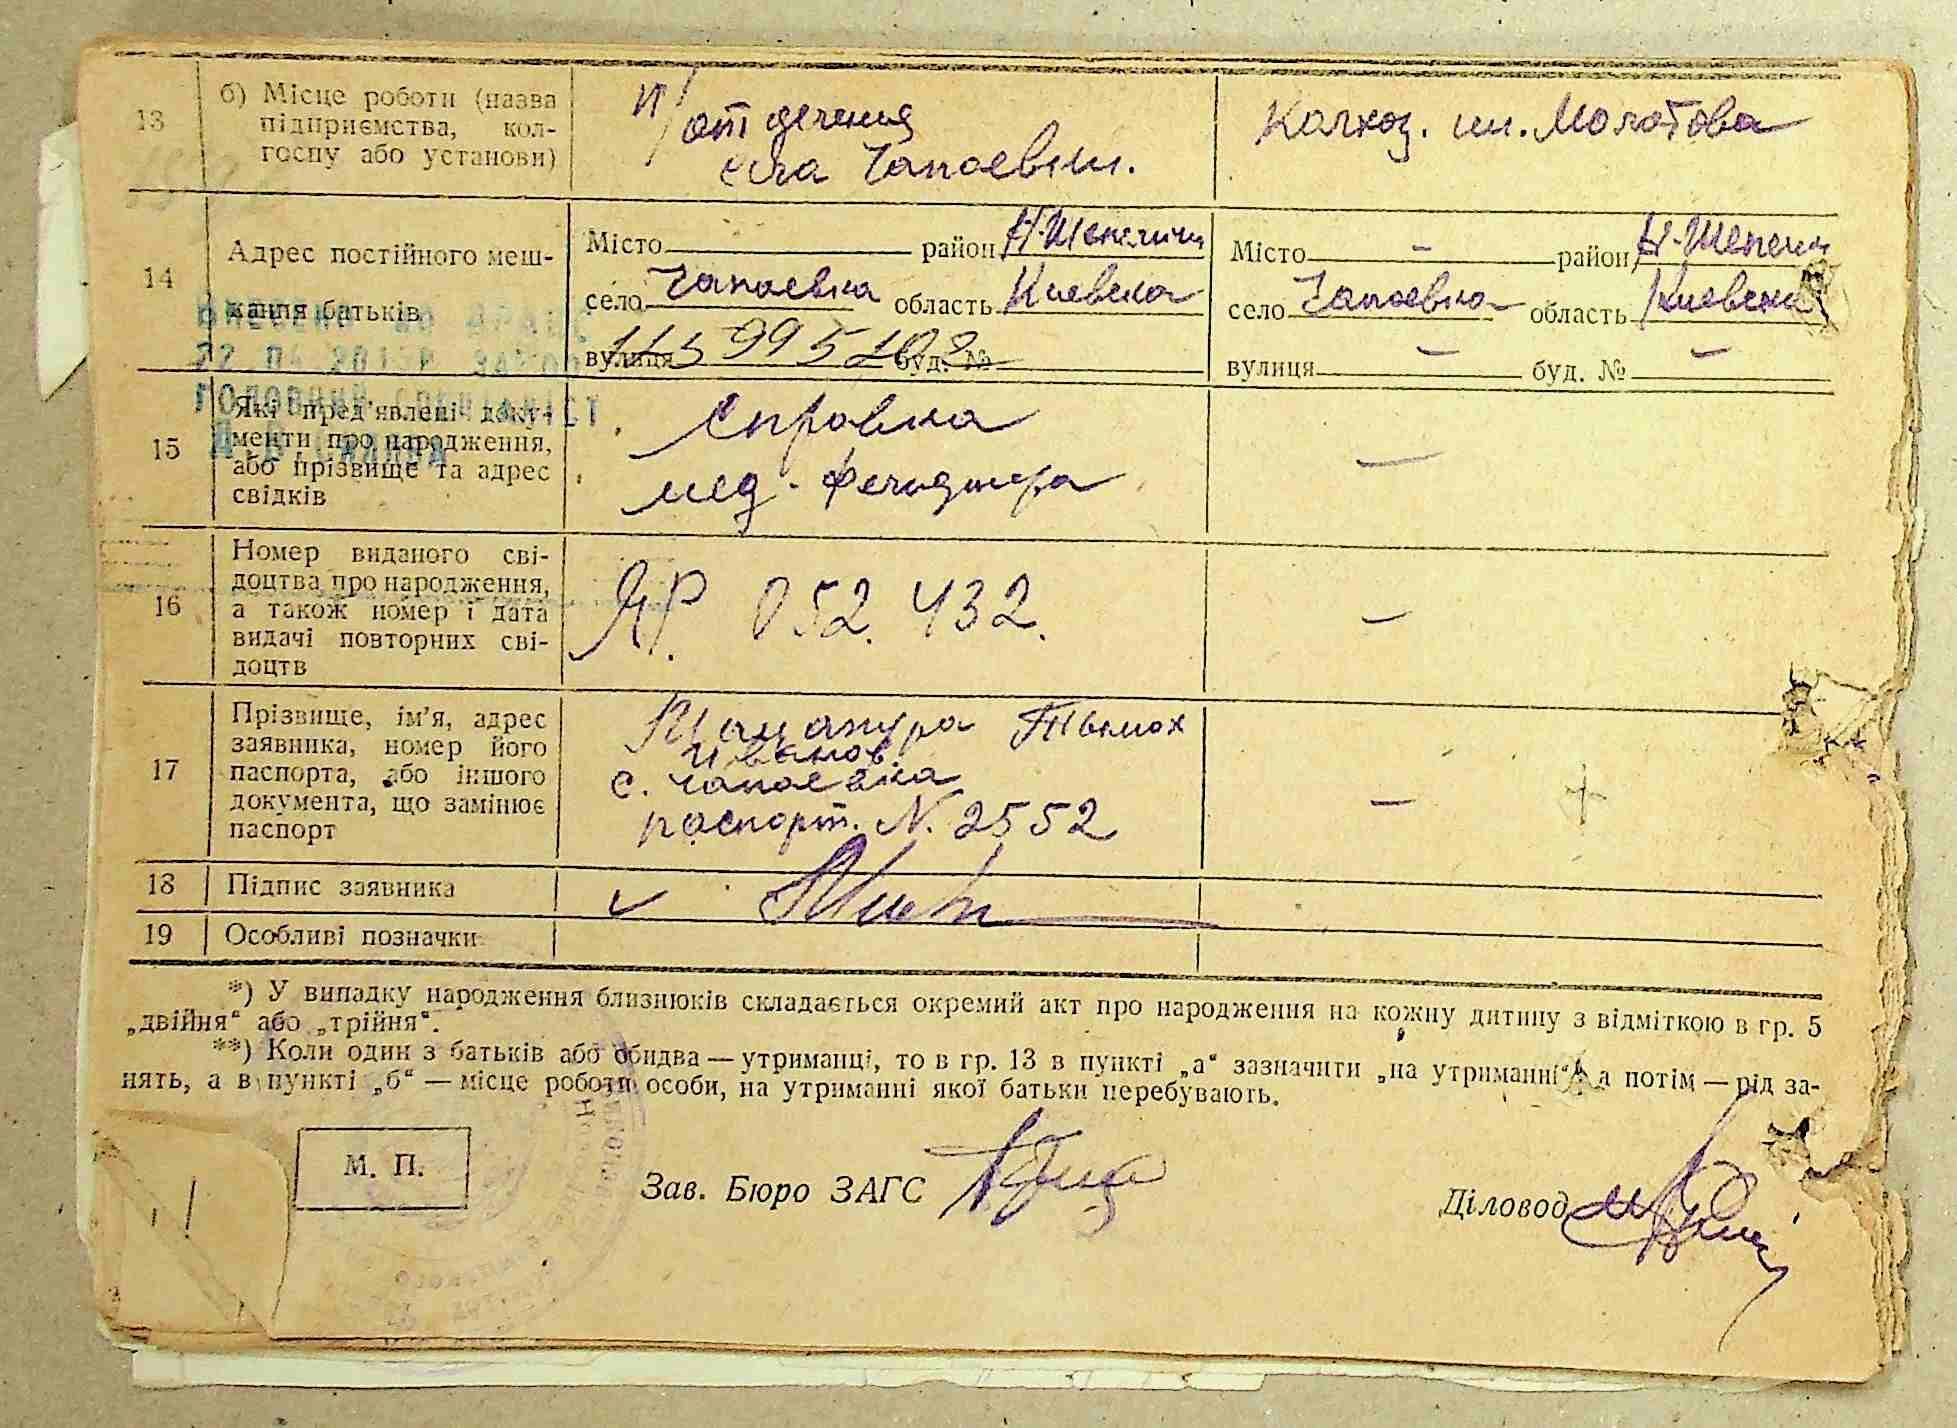 13
б) Місце роботи (назва
підприємства, кол-
госпу або установи)
п/отделения
села Чапаевки.
Колхоз. им. Молотова
14
Адрес постійного меш-
кання батьків
Місто район Н-Шепеличи
село Чапаевка область Киевска
вулиця буд. №
Місто – район Н-Шепелич
село Чапаевка область Киевска
вулиця – буд. № –
115995108
22 04 2013
ГОЛОВНИЙ СПЕЦІАЛІСТ
15
Які пред'явлені доку-
менти про народження,
або прізвище та адрес
свідків
Справка
мед. фельдшера
–
16
Номер виданого сві-
доцтва про народження,
а також номер і дата
видачі повторних сві-
доцтв
ЯР. 052.432.
–
17
Прізвище, ім'я, адрес
заявника, номер його
паспорта, або іншого
документа, що замінює
паспорт
Иванов
с. Чапаевка
паспорт. N. 2552
–
18
Підпис заявника
19
Особливі позначки
*) У випадку народження близнюків складається окремий акт про народження на кожну дитину з відміткою в гр. 5
„двійня“ або „трійня“.
**) Коли один з батьків або обидва — утриманці, то в гр. 13 в пункті „а“ зазначити „на утриманні“, а потім — рід за-
нять, а в пункті „б“ — місце роботи особи, на утриманні якої батьки перебувають.
М. П.
Зав. Бюро ЗАГС
Діловод